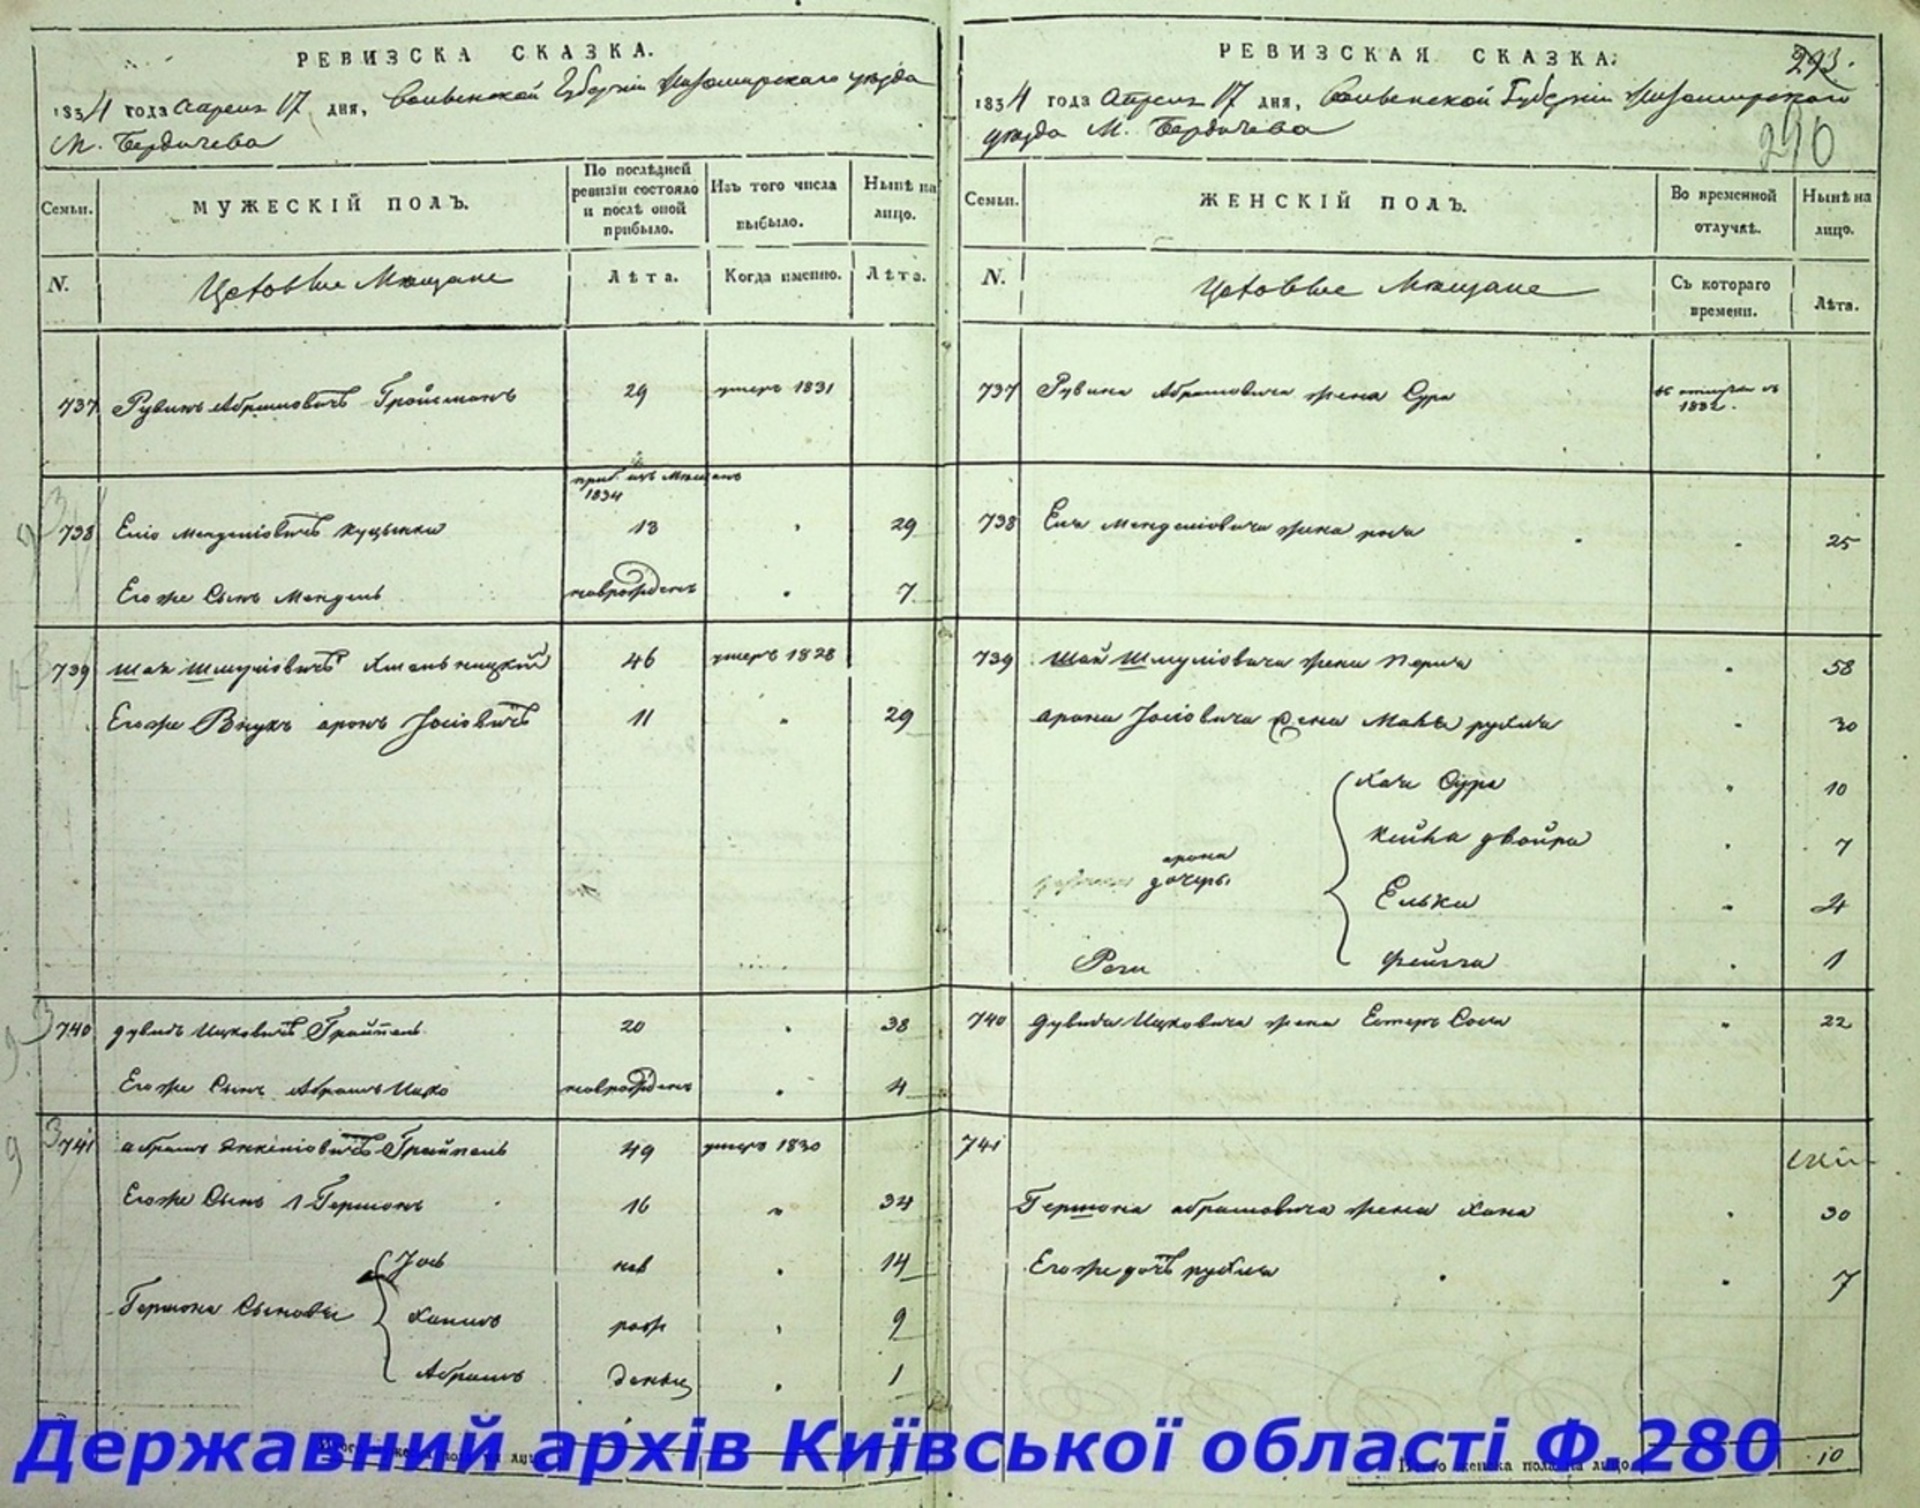 РЕВИЗСКА СКАЗКА.
1834 года Апреля 17 дня, Волынской Губернии Житомирского уезда
М. Бердичева
Семьи.
МУЖЕСКІЙ ПОЛЪ.
По послѣдней ревизіи состояло и послѣ оной прибыло.
Изъ того числа выбыло.
Нынѣ на лицо.
N.
Цеховые Мещане
Лѣта.
Когда именно.
Лѣта.
737 Рувинъ Абрамовичъ Гройсманъ 29 умеръ 1831
приб. изъ Мещанъ 1834
738 Еліо Менделіовичъ 13 29
Егоже Сынъ Мендель новорожденъ 7
739 Шая Шмуліовичъ Хмельницкій 46 умеръ 1828
Егоже Внукъ Аронъ Іосіовичъ 11 29
740 Дувидъ Ицковичъ Грайпель 20 38
Егоже Сынъ Абрамъ Ицко новорожденъ 4
741 Абрамъ Грайпель 49 умеръ 1830
Егоже Сынъ 1 Гершонъ 16 34
Іось нов 14
Гершона Сыновья Хаимъ рож 9
Абрамъ денны 1
РЕВИЗСКАЯ СКАЗКА.
293.
1834 года Апреля 17 дня, Волынской Губерніи Житомирского
уезда М. Бердичева
290
Семьи.
ЖЕНСКІЙ ПОЛЪ.
Во временной отлучкѣ.
Нынѣ на лицо.
N.
Цеховые Мещане
Съ котораго времени.
Лѣта.
737 Рувина Абрамовича жена Сура въ отлучке съ 1832.
738 Еля Менделіовича жена 25
739 Шая Шмуліовича жена Перля 58
Арона Іосіовича жена Рухля 30
Хая Сура 10
Двойра 7
Арона дочери
Елька 4
Фейга 1
740 Дувида Ицковича жена Естеръ 22
741
Гершона Абрамовича жена Хана 30
Егоже дочь Рухля 7
Итого женска полу на лицо 10
Державний архів Київської області Ф.280